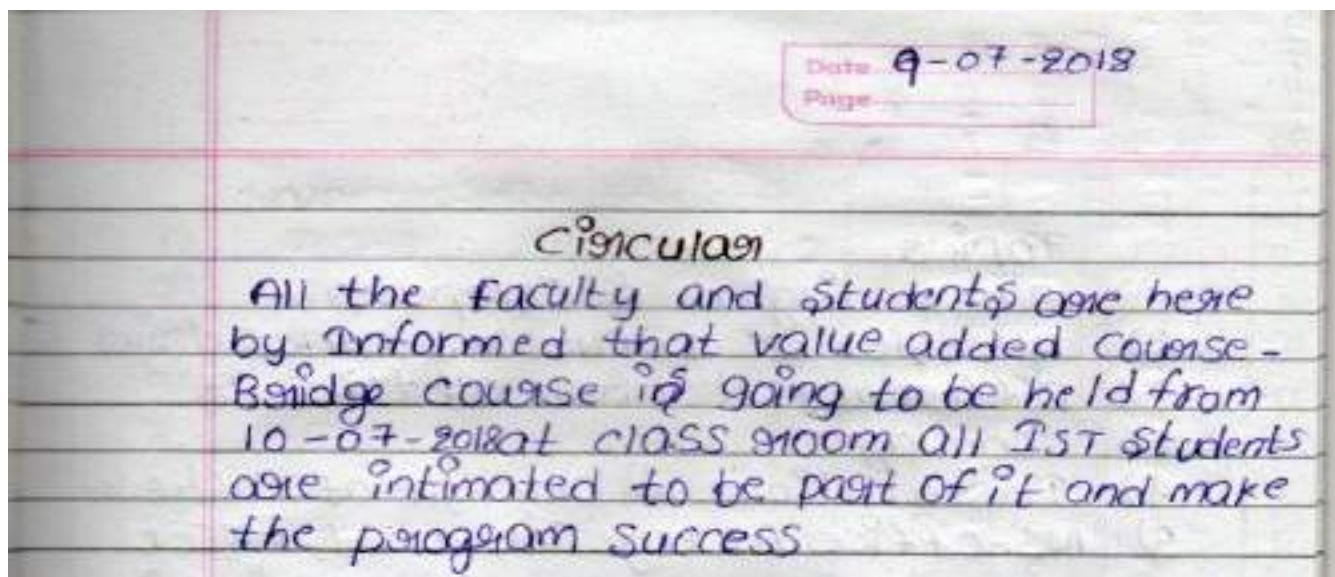 Date 9-07-2018
Page
Circular
All the Faculty and Students are here
by Informed that value added Course-
Bridge course is going to be held from
10-07-2018 at class room all IST Students
are intimated to be part of it and make
the program Success